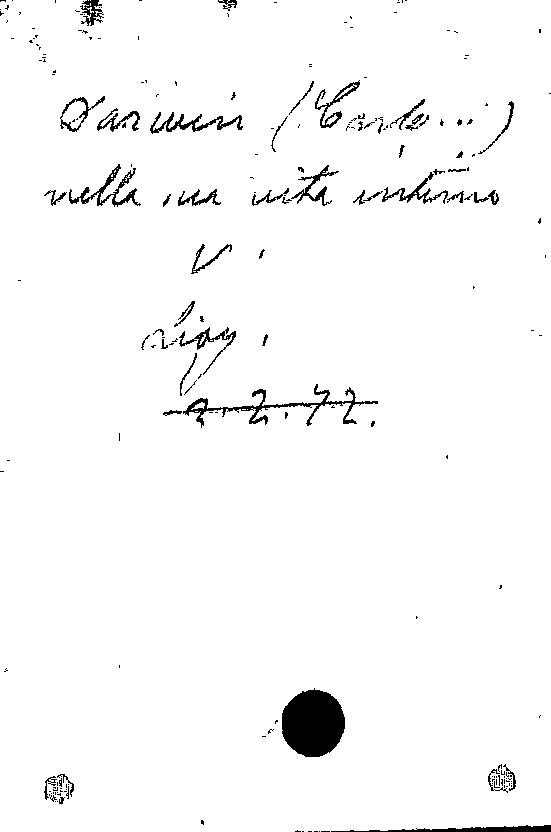 Darwin (Carlo...)
nella sua vita intima
V.
2.2.72.